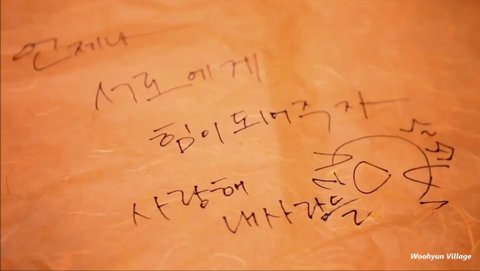 언제나
서로에게
힘이되어주자
사랑해
내사람들
Woohyun Village